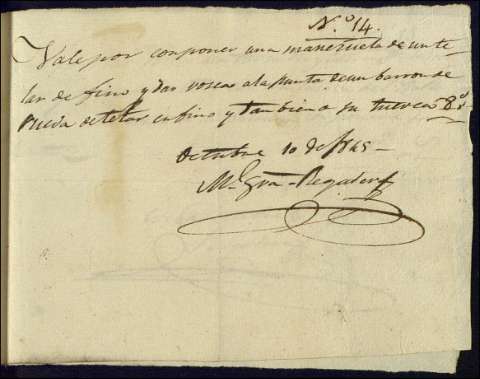 N.º 14.
Vale por componer una manezuela de un te-
lar de fino y das roscas a la punta de un barron de
rueda de telar en fino y tanbien a su tuerca 8 r.s
Octubre 10 de 1845 -
M.l Gra